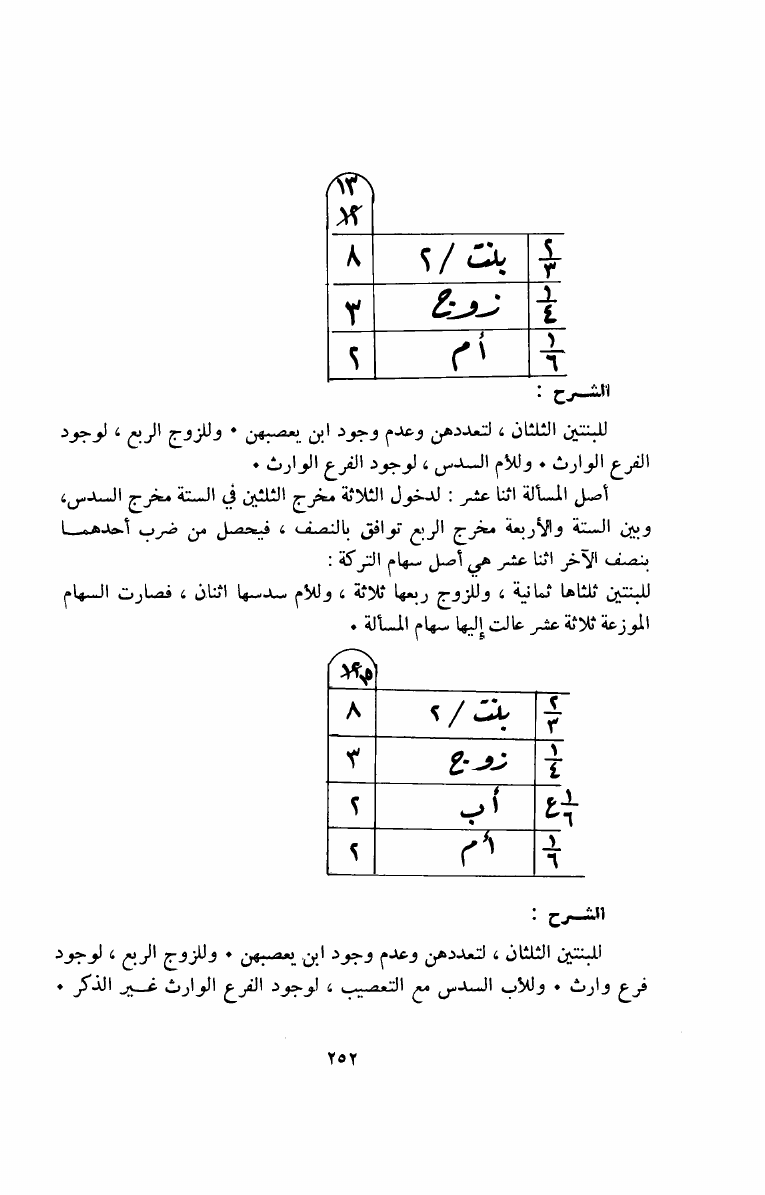 ١٣
١٢
٢/٣ بنت / ٢ ٨
١/٤ زوج ٣
١/٦ أم ٢
الشرح :
للبنتين الثلثان ، لتعددهن وعدم وجود ابن يعصبهن • وللزوج الربع ، لوجود
الفرع الوارث • وللأم السدس ، لوجود الفرع الوارث •
أصل المسألة اثنا عشر : لدخول الثلاثة مخرج الثلثين في الستة مخرج السدس،
وبين الستة والأربعة مخرج الربع توافق بالنصف ، فيحصل من ضرب أحدهمـا
بنصف الآخر اثنا عشر هي أصل سهام التركة :
للبنتين ثلثاها ثمانية ، وللزوج ربعها ثلاثة ، وللأم سدسها اثنان ، فصارت السهام
الموزعة ثلاثة عشر عالت إليها سهام المسألة •
١٢ ١٥
٢/٣ بنت / ٢ ٨
١/٤ زوج ٣
١/٦ ع أب ٢
١/٦ أم ٢
الشرح :
للبنتين الثلثان ، لتعددهن وعدم وجود ابن يعصبهن • وللزوج الربع ، لوجود
فرع وارث • وللأب السدس مع التعصيب ، لوجود الفرع الوارث غـير الذكر •
٢٥٢